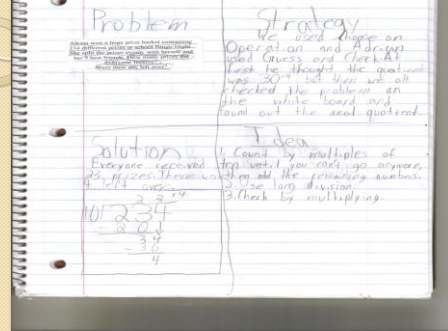 Problem
Alexia won a huge prize basket containing
234 different prizes at school Bingo Night.
She split the prizes evenly with herself and
her 9 best friends. How many prizes did
everyone receive?
Were there any left over?
Strategy
We used Choose an
Operation and Adrian
used Guess and Check. At
first he thought the quotient
was 30 r4 but then we all
checked the problem on
the white board and
found out the real quotient.
Solution
Everyone received
23 prizes. There was
4 left over.
23 r4
10 234
- 20
34
- 30
4
Idea
1. Count by multiples of
ten until you can't go anymore,
then add the remaining numbers.
2. Use long division.
3. Check by multiplying.